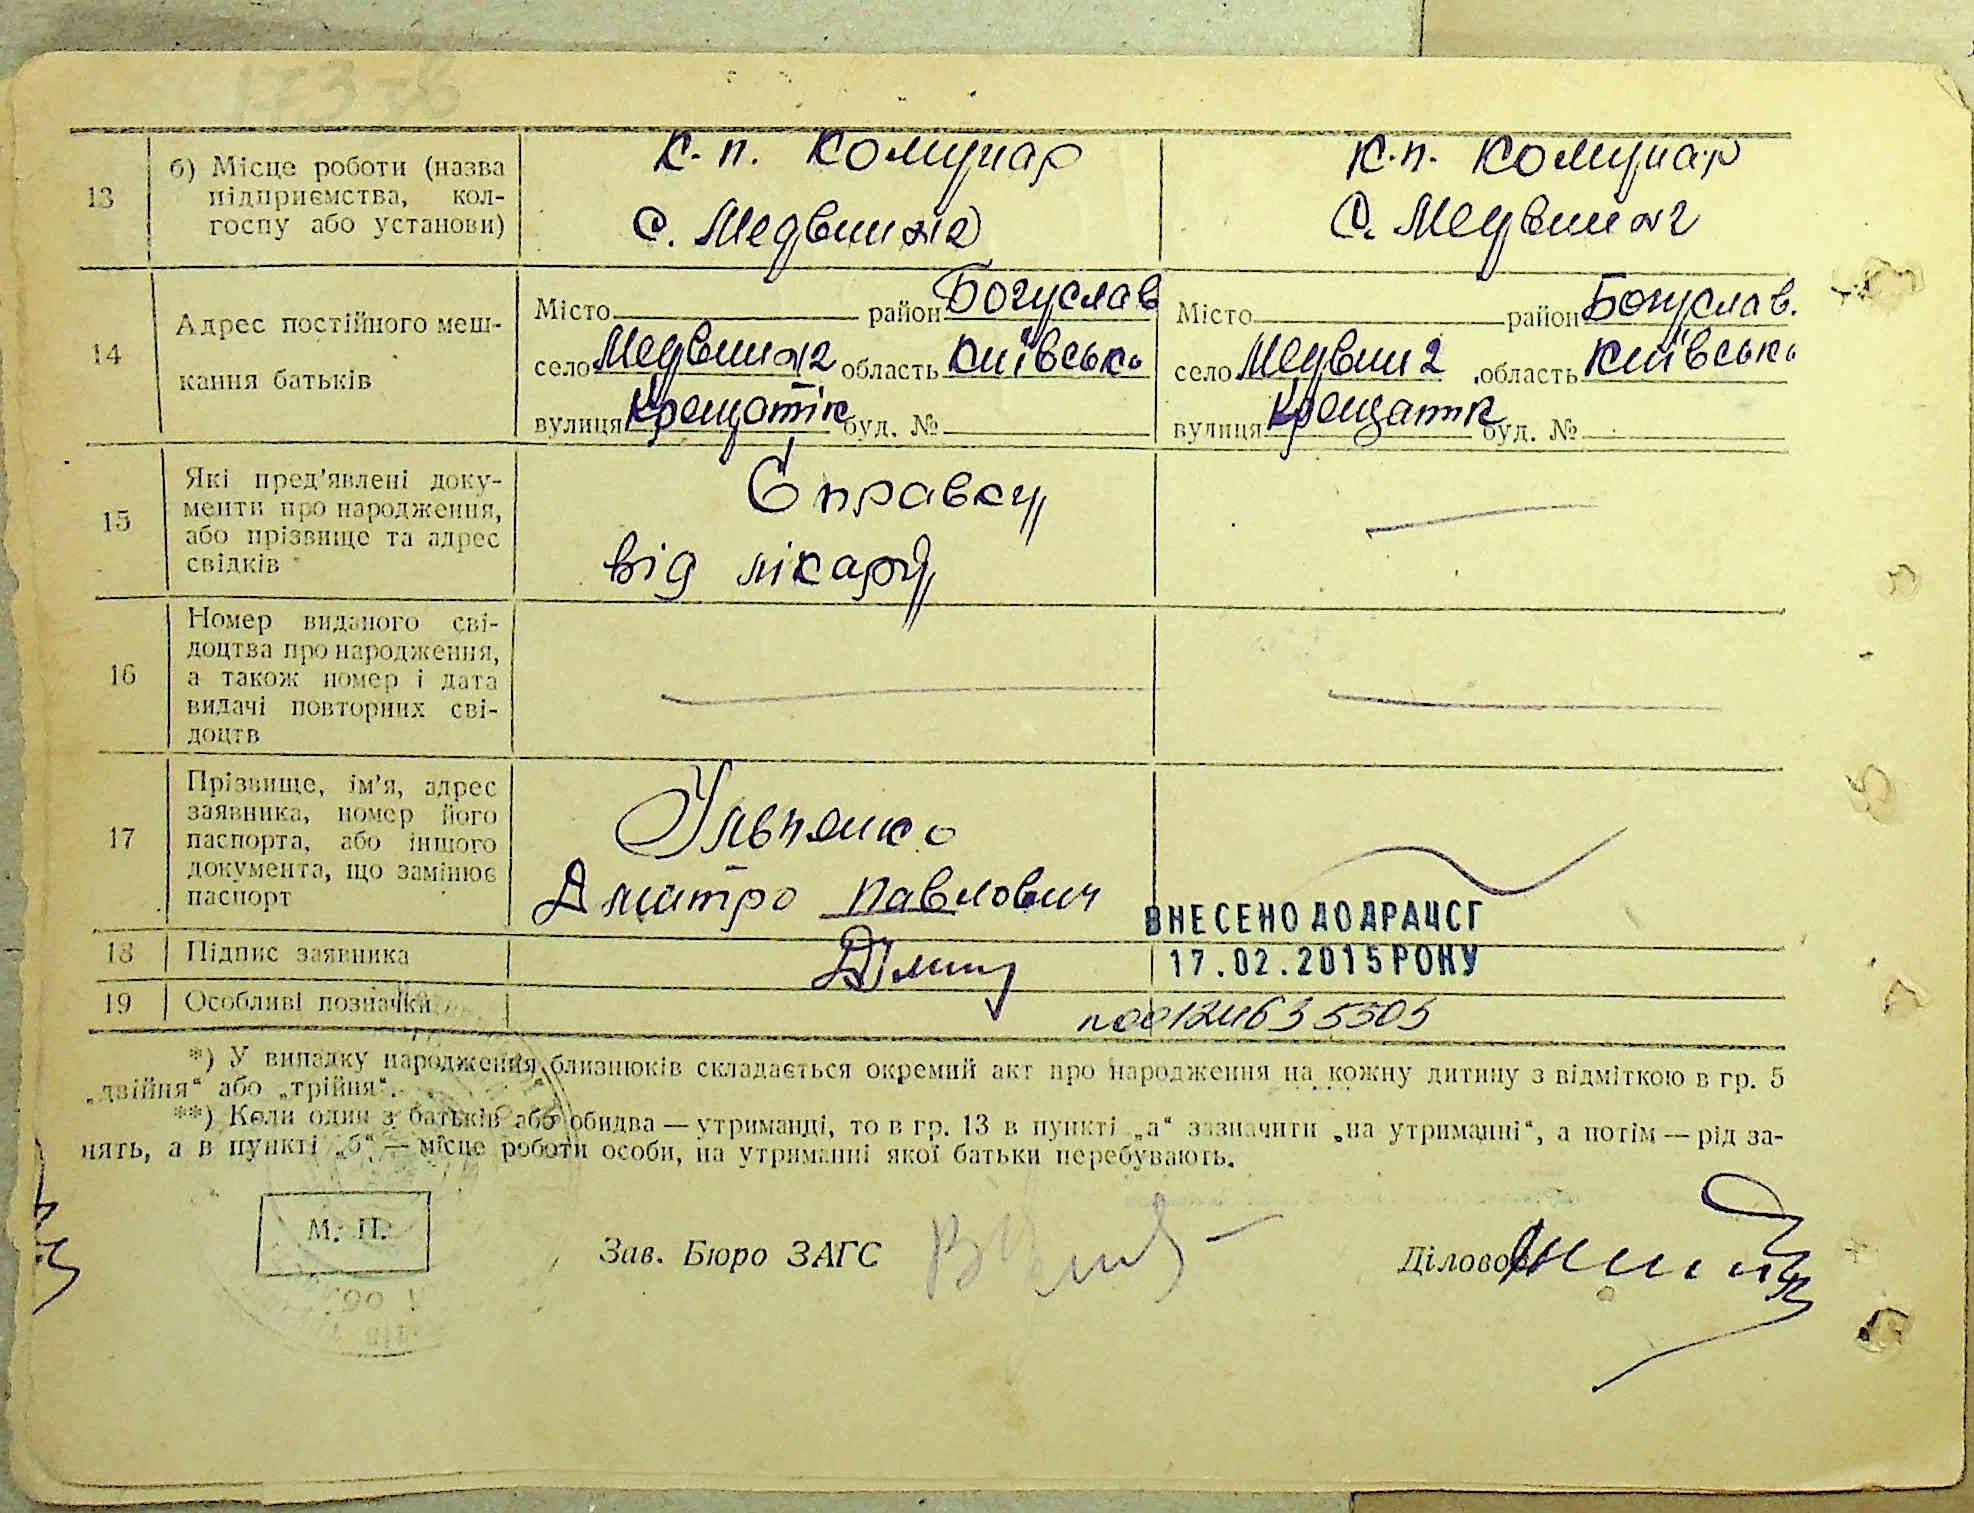 13
б) Місце роботи (назва
підприємства, кол-
госпу або установи)
к. п. Комунар
с. Медвин №2
к.п. Комунар
с. Медвин №2
14
Адрес постійного меш-
кання батьків
Місто район Богуслав
село Медвин №2 область Київська
вулиця Крещатік буд. №
Місто район Богуслав.
село Медвин 2 область Київська
вулиця Крещатік буд. №
15
Які пред'явлені доку-
менти про народження,
або прізвище та адрес
свідків
Справку
від лікаря
16
Номер виданого сві-
доцтва про народження,
а також номер і дата
видачі повторних сві-
доцтв
17
Прізвище, ім'я, адрес
заявника, номер його
паспорта, або іншого
документа, що замінює
паспорт
Дмитро Павлович
ВНЕСЕНО ДО ДРАЦСГ
17.02.2015 РОКУ
18
Підпис заявника
19
Особливі позначки
*) У випадку народження близнюків складається окремий акт про народження на кожну дитину з відміткою в гр. 5
„двійня“ або „трійня“.
**) Коли один з батьків або обидва — утриманці, то в гр. 13 в пункті „а“ зазначити „на утриманні“, а потім — рід за-
нять, а в пункті „б“ — місце роботи особи, на утриманні якої батьки перебувають.
М. П.
Зав. Бюро ЗАГС
Діловод